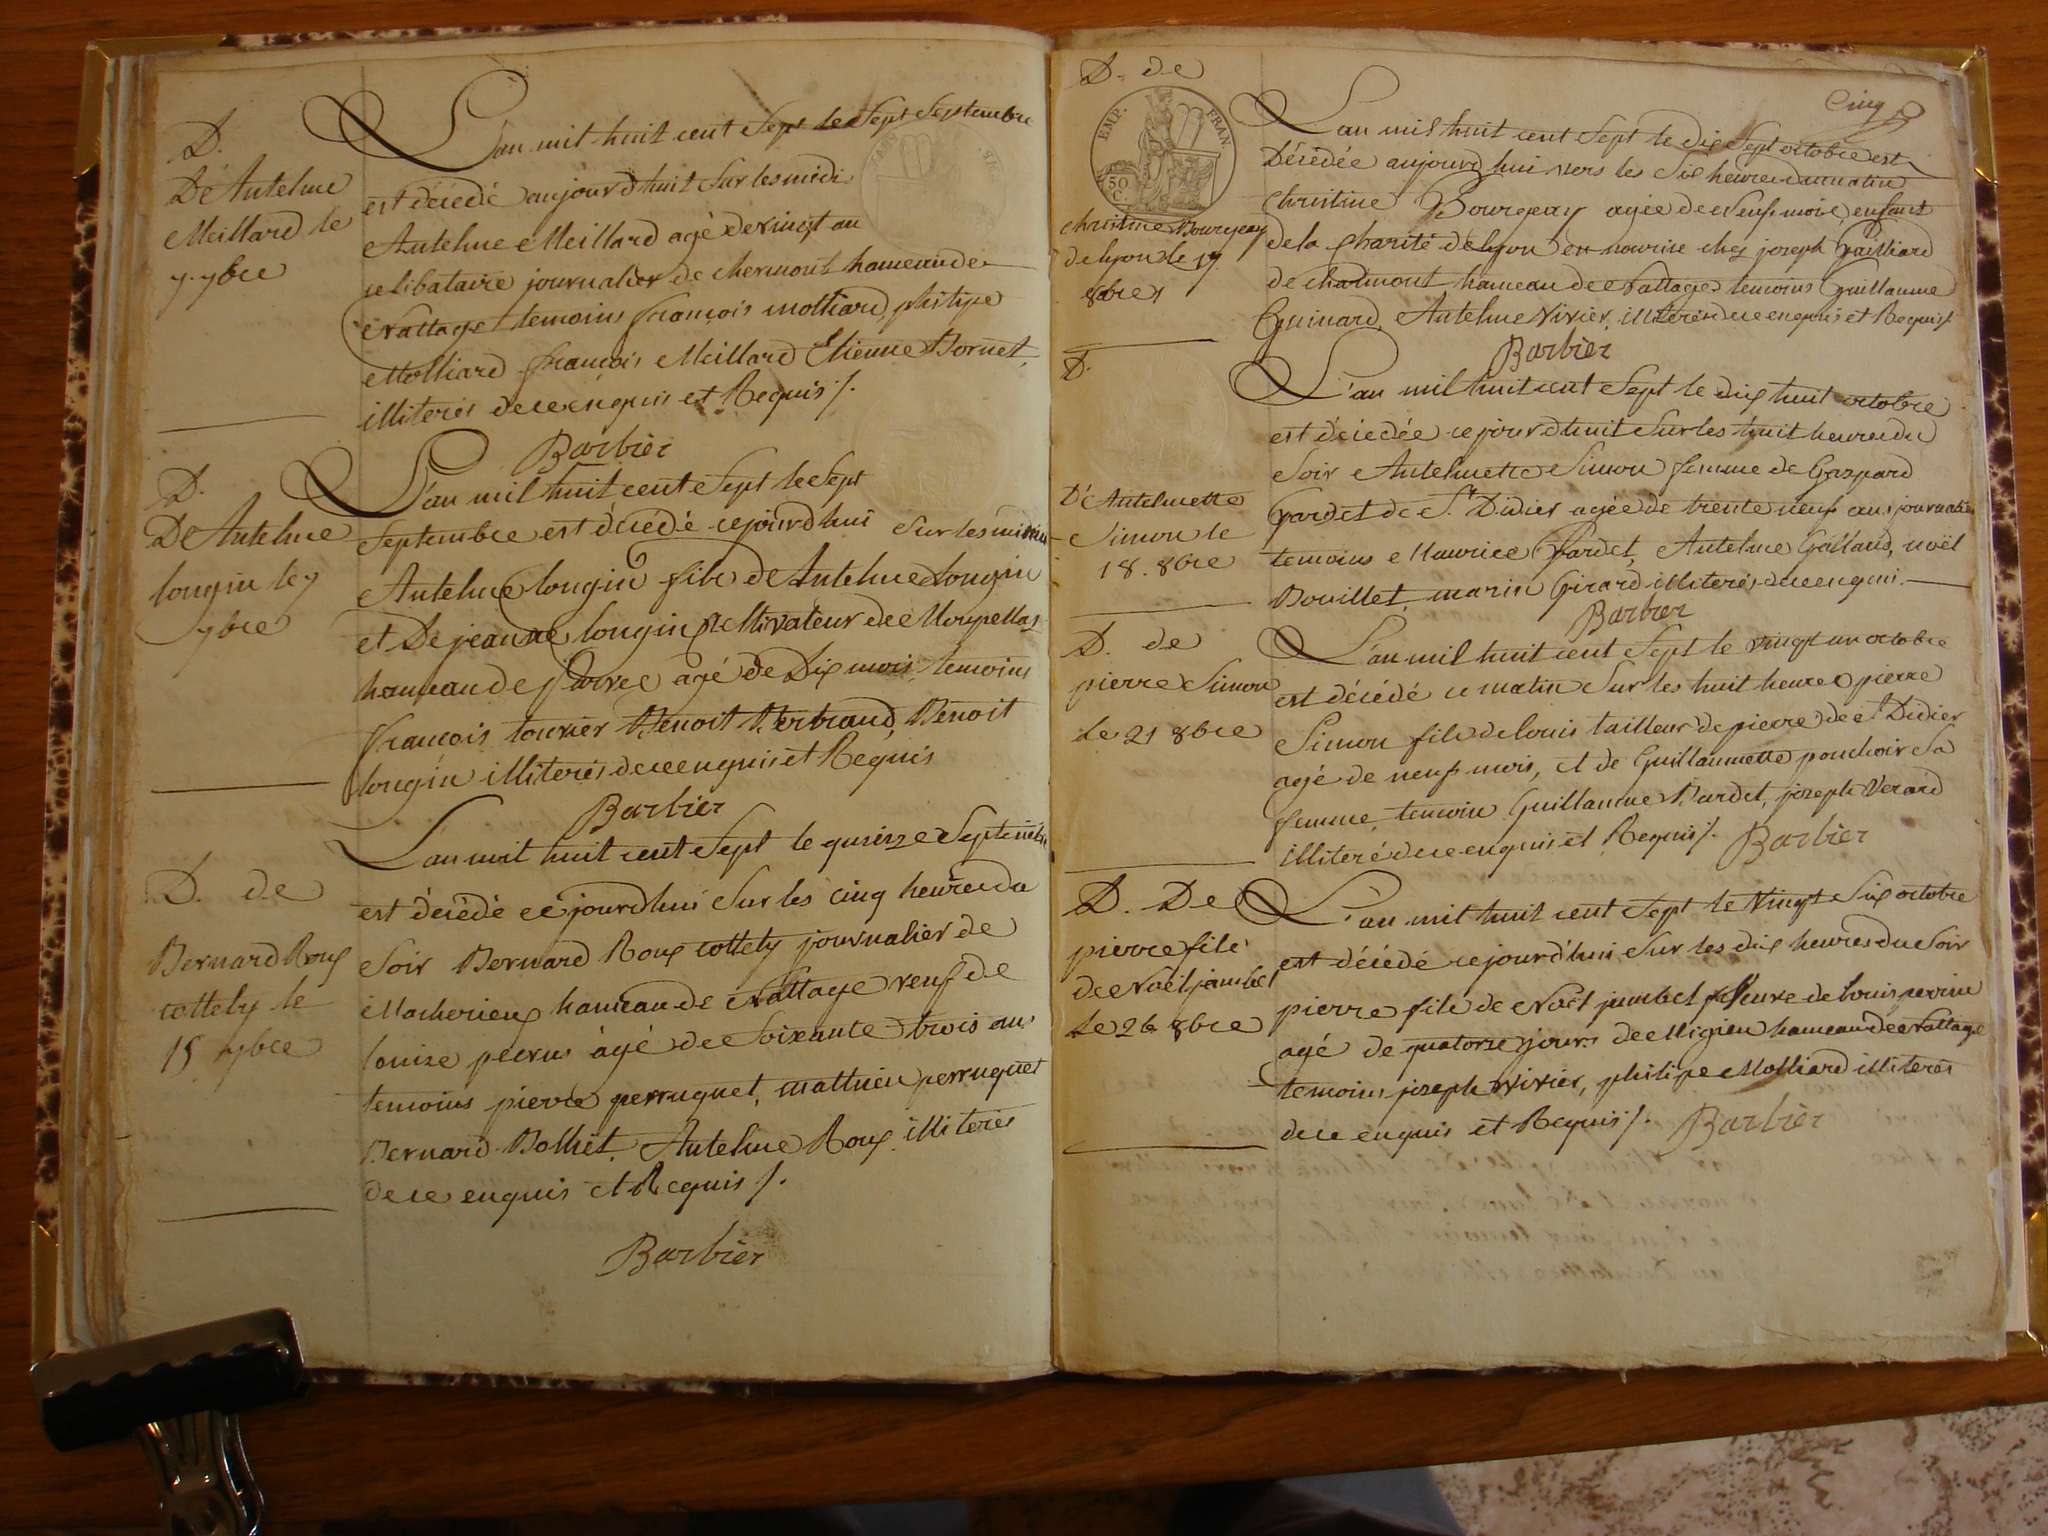 D.
De Antelme
Meillard le
7. 7bre
L'an mil huit cent Sept le Sept Septembre
est décedé aujourd'huit Sur les midi
Antelme Meillard agé de vingt an
celibataire journalier de chermont hameau de
Nattage temoins françois molliard, philipe
Molliard françois Meillard Etienne Bornet,
illiterés de ce enquis et Requis /.
Barbier
D.
De Antelme
longin le 7
7bre
L'an mil huit cent Sept le Sept
Septembre est décédé cejourd'hui Sur les midi
Antelme longin fils d'Antelme longin
et De jeanne longin cultivateur de
hameau de parves agé de Dix mois, temoins
françois tournier Benoit Bertrand, Benoit
longin illiterés de ce enquis et Requis
Barbier
D. de
Bernard Roux
cottely le
15 7bre
L'an mil huit cent Sept le quinze Septembre
est décédé cejourdhui Sur les cinq heures du
Soir Bernard Roux cottely journalier de
hameau de Nattage veuf de
louise pecrus âgé de Soixante trois ans
temoins pierre perruquet, mathieu perruquet
Bernard Bolliet, Antelme Roux illiterés
de ce enquis et Requis /.
Barbier
D. de
EMP. FRAN.
50 C.
christine Bourgeay
de lyon le 17
8bre
Cinq
L'an mil huit cent Sept le dix Sept octobre est
Décédée aujourd'hui vers les Six heures du matin
christine Bourgeay agée de neuf mois, enfant
de la charité de lyon en nourise chez joseph
de charmont hameau de Nattages temoins Guillaume
Guinard, Antelme Vivier, illiterés de ce enquis et Requis /.
Barbier
D.
De Antelmette
Simon le
18. 8bre
L'an mil huit cent Sept le dix huit octobre
est décedée cejourd'huit Sur les huit heures du
Soir Antelmette Simon femme de Gaspard
Gardet de St Didier agée de trente neuf ans journalier
temoins Maurice Gardet, Antelme Gaillard, noël
Bouillet, marin Girard illiterés de ce enquis.
Barbier
D. de
pierre Simon
Le 21 8bre
L'an mil huit cent Sept le vingt un octobre
est décédé ce matin Sur les huit heures pierre
Simon fils de louis tailleur de pierre de St Didier
agé de neuf mois, et de Guillaumette ponchoir Sa
femme, temoins Guillaume Bardet, joseph Verard
illiteré de ce enquis et Requis /. Barbier
D. De
pierre fils
de Noël jambet
Le 26 8bre
L'an mil huit cent Sept le Vingt Six octobre
est décédé cejourd'hui Sur les dix heures du Soir
pierre fils de Noël jambet et de louis perrine
agé de quatorze jours de Migieu hameau de Nattage
temoins joseph Vivier, philipe Molliard illiterés
de ce enquis et Requis /. Barbier